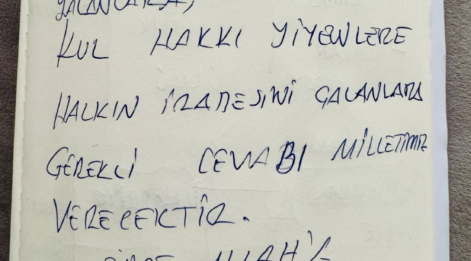 YALANCILARA,
KUL HAKKI YİYENLERE
HALKIN İRADESİNİ ÇALANLARA
GEREKLİ CEVABI MİLLETİMİZ
VERECEKTİR.
ALLAH'A